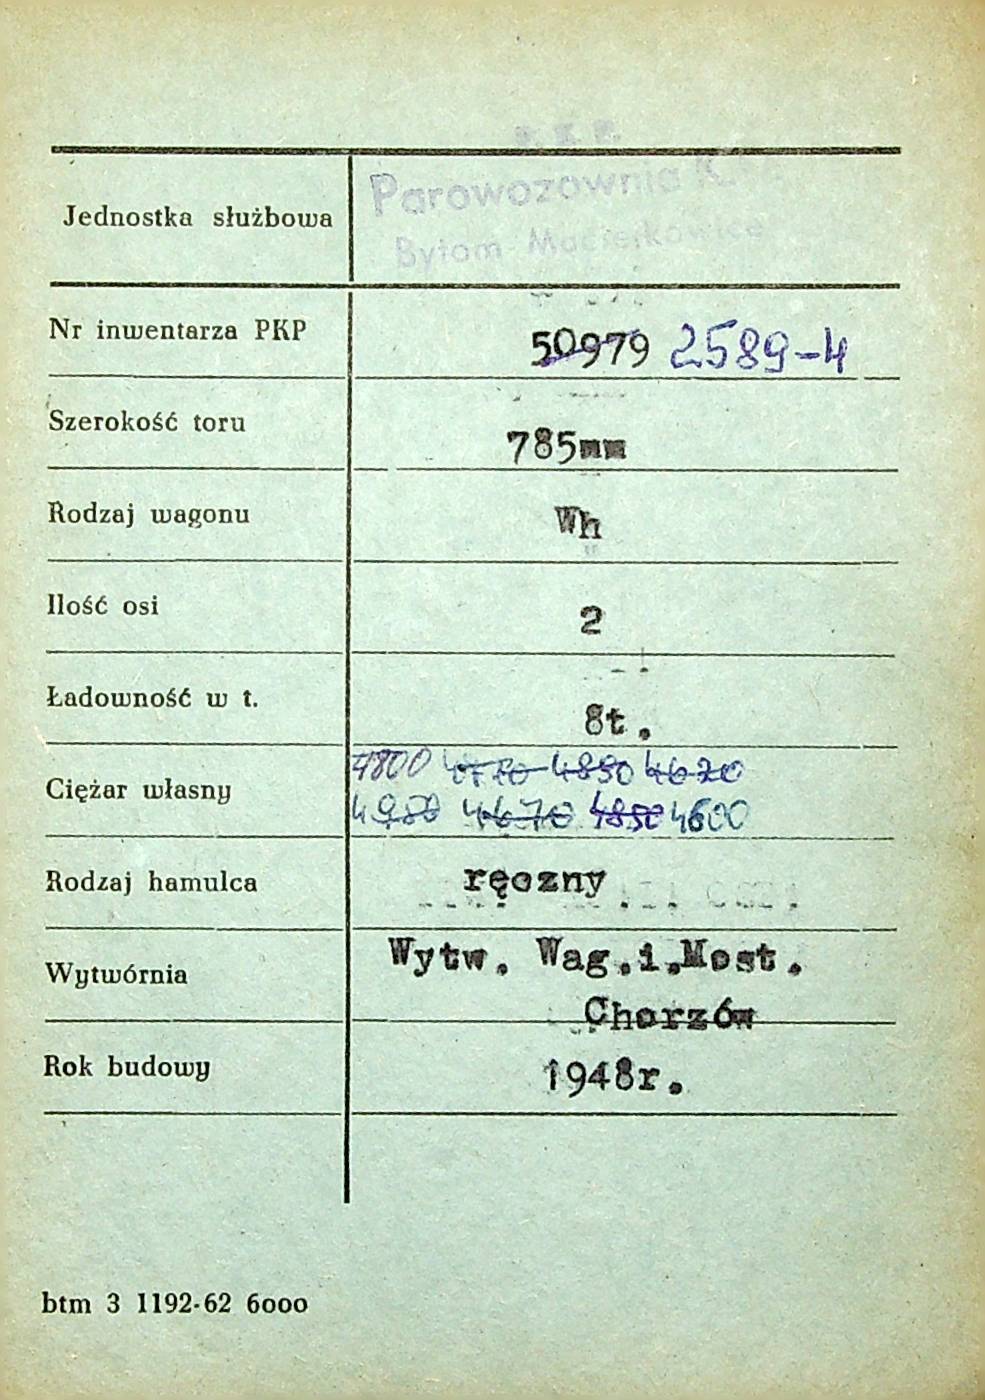 P. K. P.
Parowozownia
Jednostka służbowa
Bytom Maciejkowice
Nr inwentarza PKP 50979 2589-4
Szerokość toru 785mm
Rodzaj wagonu Wh
Ilość osi 2
Ładowność w t. 8t.
4800 4770 4850 4620
Ciężar własny
4980 4670 4850 4600
Rodzaj hamulca ręczny
Wytw. Wag.i.Most.
Wytwórnia
Chorzów
Rok budowy 1948r.
btm 3 1192-62 6000